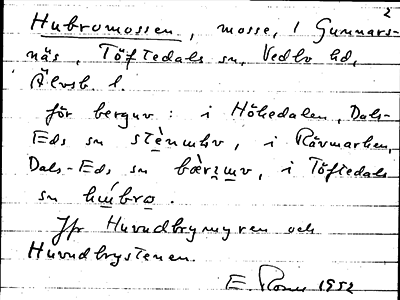 2
Hubromossen, mosse, i Gunnars-
näs, Töftedals sn, Vedbo hd,
Älvsb. l.
för berguv: i Höhedalen, Dals-
Eds sn i Rävmarken,
Dals-Eds sn i Töftedals
sn
Jfr Huvudbrymyren och
Huvudbrystenen.
E. 1952